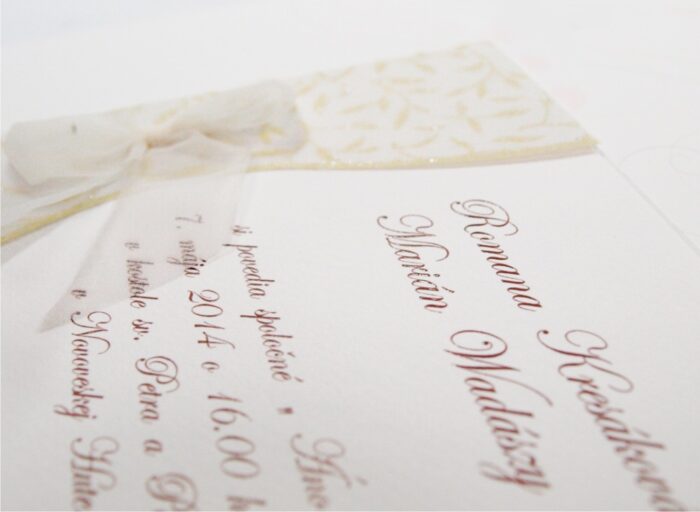 Romana Kresáková
Marián Wadászy
si povedia spoločné " Áno
7. mája 2014 o 16.00 h
v kostole sv. Petra a P
v Novoveskej Hute